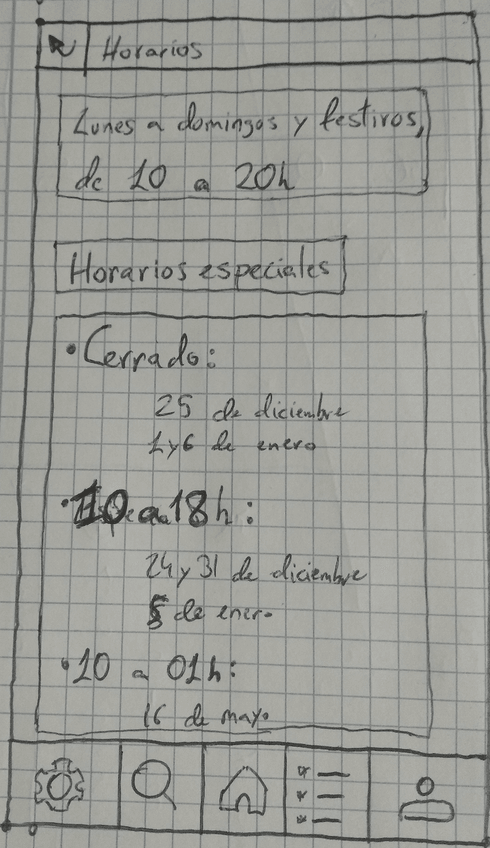 Horarios
Lunes a domingos y festivos,
de 10 a 20h
Horarios especiales
• Cerrado:
25 de diciembre
1 y 6 de enero
• 10 a 18h:
24 y 31 de diciembre
5 de enero
• 10 a 01h:
16 de mayo